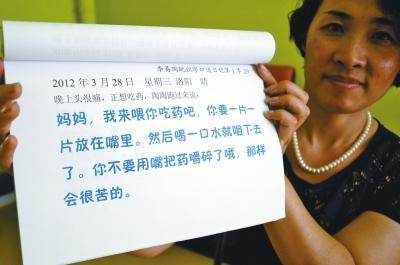 李高陶珧识字口述日记第1季29
2012年3月28日 星期三 洛阳 晴
晚上头很痛，正想吃药，陶陶跑过来说：
妈妈，我来喂你吃药吧，你要一片一
片放在嘴里。然后喝一口水就咽下去
了。你不要用嘴把药嚼碎了哦，那样
会很苦的。